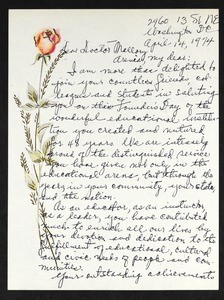 2960 13 St NE
Washington DC
April 14, 1974
Dear Doctor Mallory
I am more than delighted to
join your countless friends, col-
leagues and students in saluting
you on this Founders Day of the
wonderful educational institu-
tion you created and nurtured
for 48 years. We are intensely
proud of the distinguished service
you have given not only in the
educational arena, but through the
years in your community, your state,
and the nation.
As an educator, as an instructor,
as a leader, you have contributed
much to enrich all our lives by
your devotion and dedication to the
fulfillment of educational, cultural
and civic needs of people and com-
munities.
Your outstanding achievements